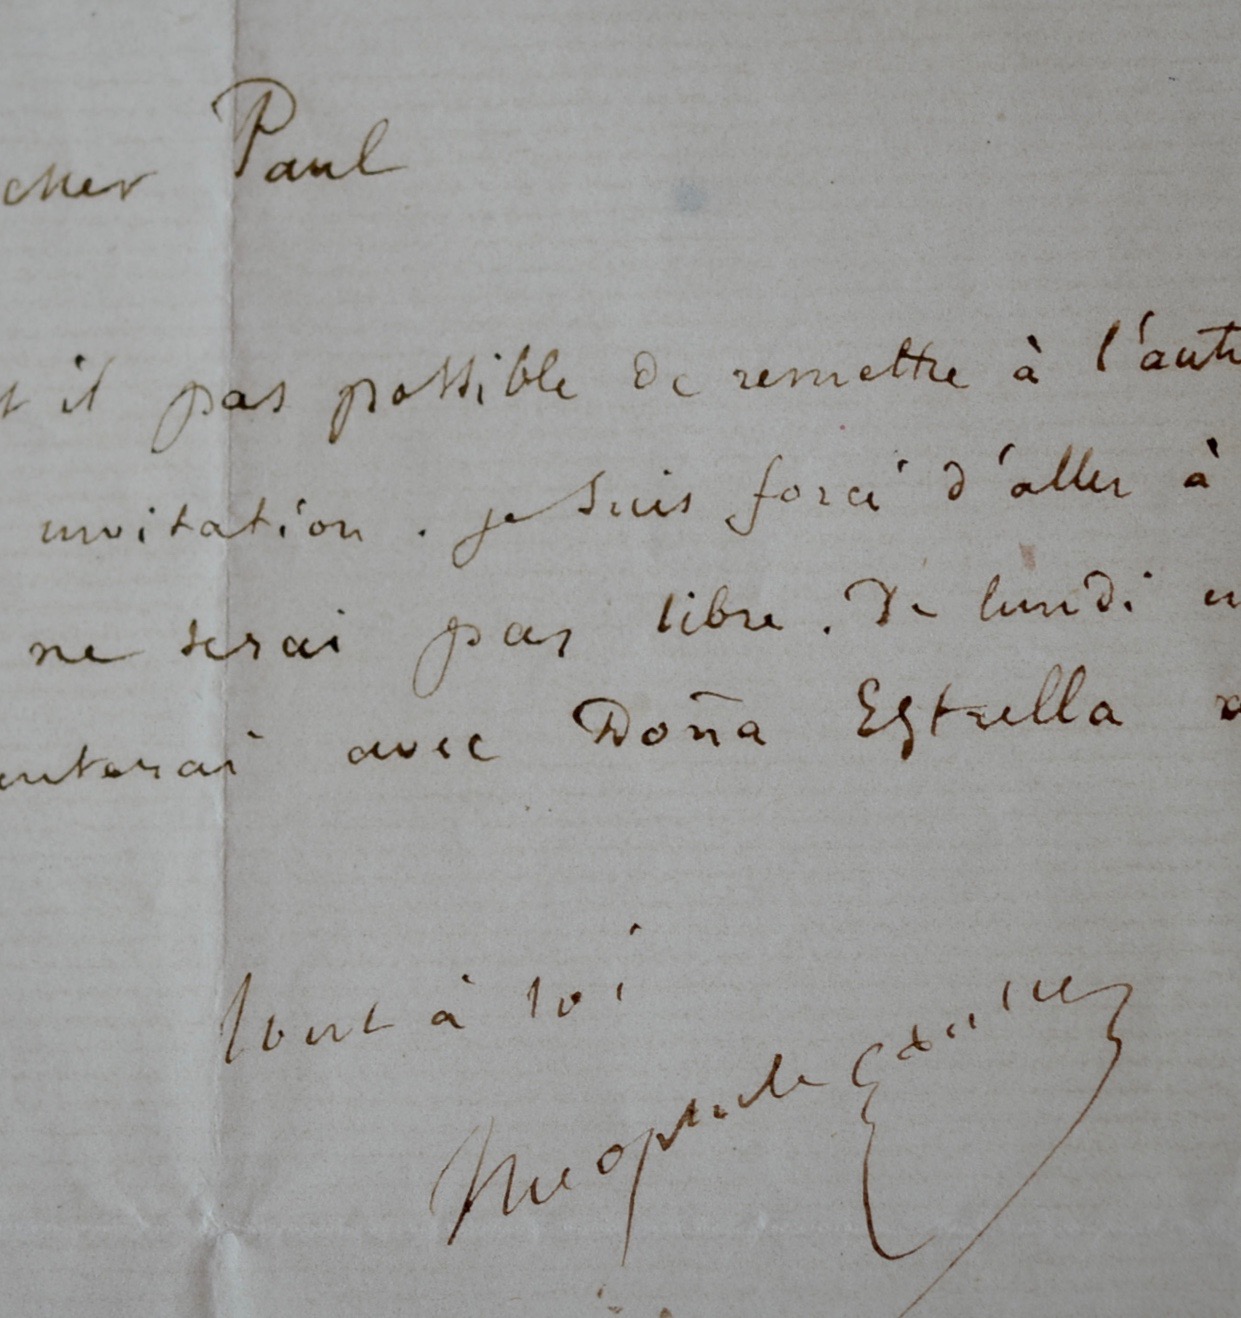 cher Paul
t il pas possible de remettre à l'autr
invitation . je suis forcé d'aller à
ne serai pas libre . De lundi en
enterai avec Doña Estrella
tout à toi
Theophile Gautier